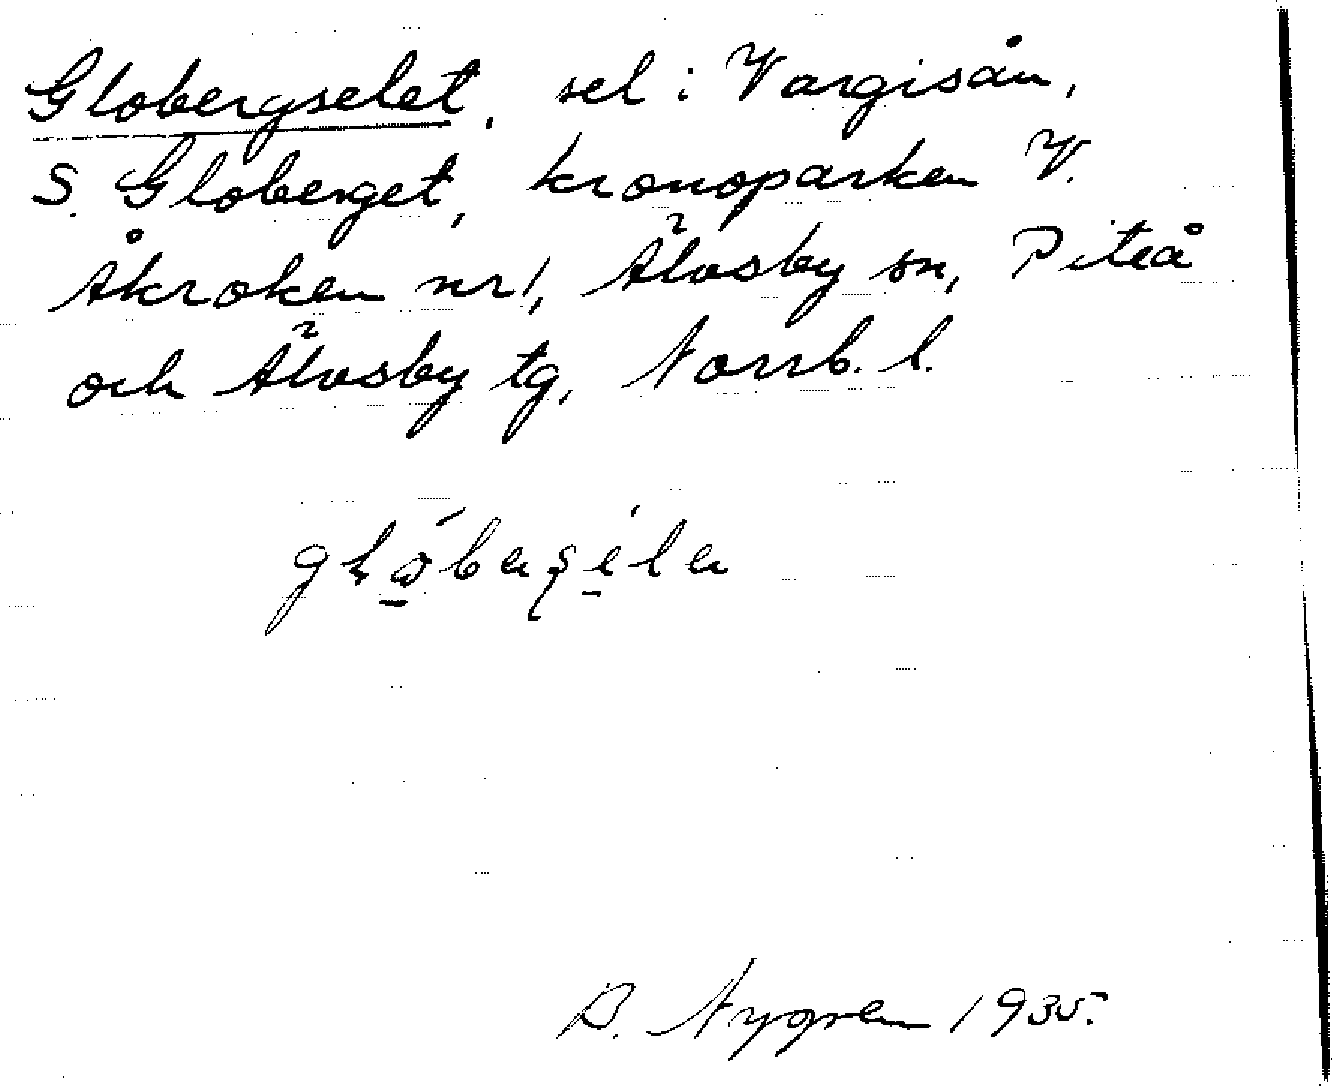 Globergselet, sel i Vargisån,
S. Globerget, kronoparken V.
Åkroken nr 1, Älvsby sn, Piteå
och Älvsby tg, Norrb. l.
B. Nygren 1935.